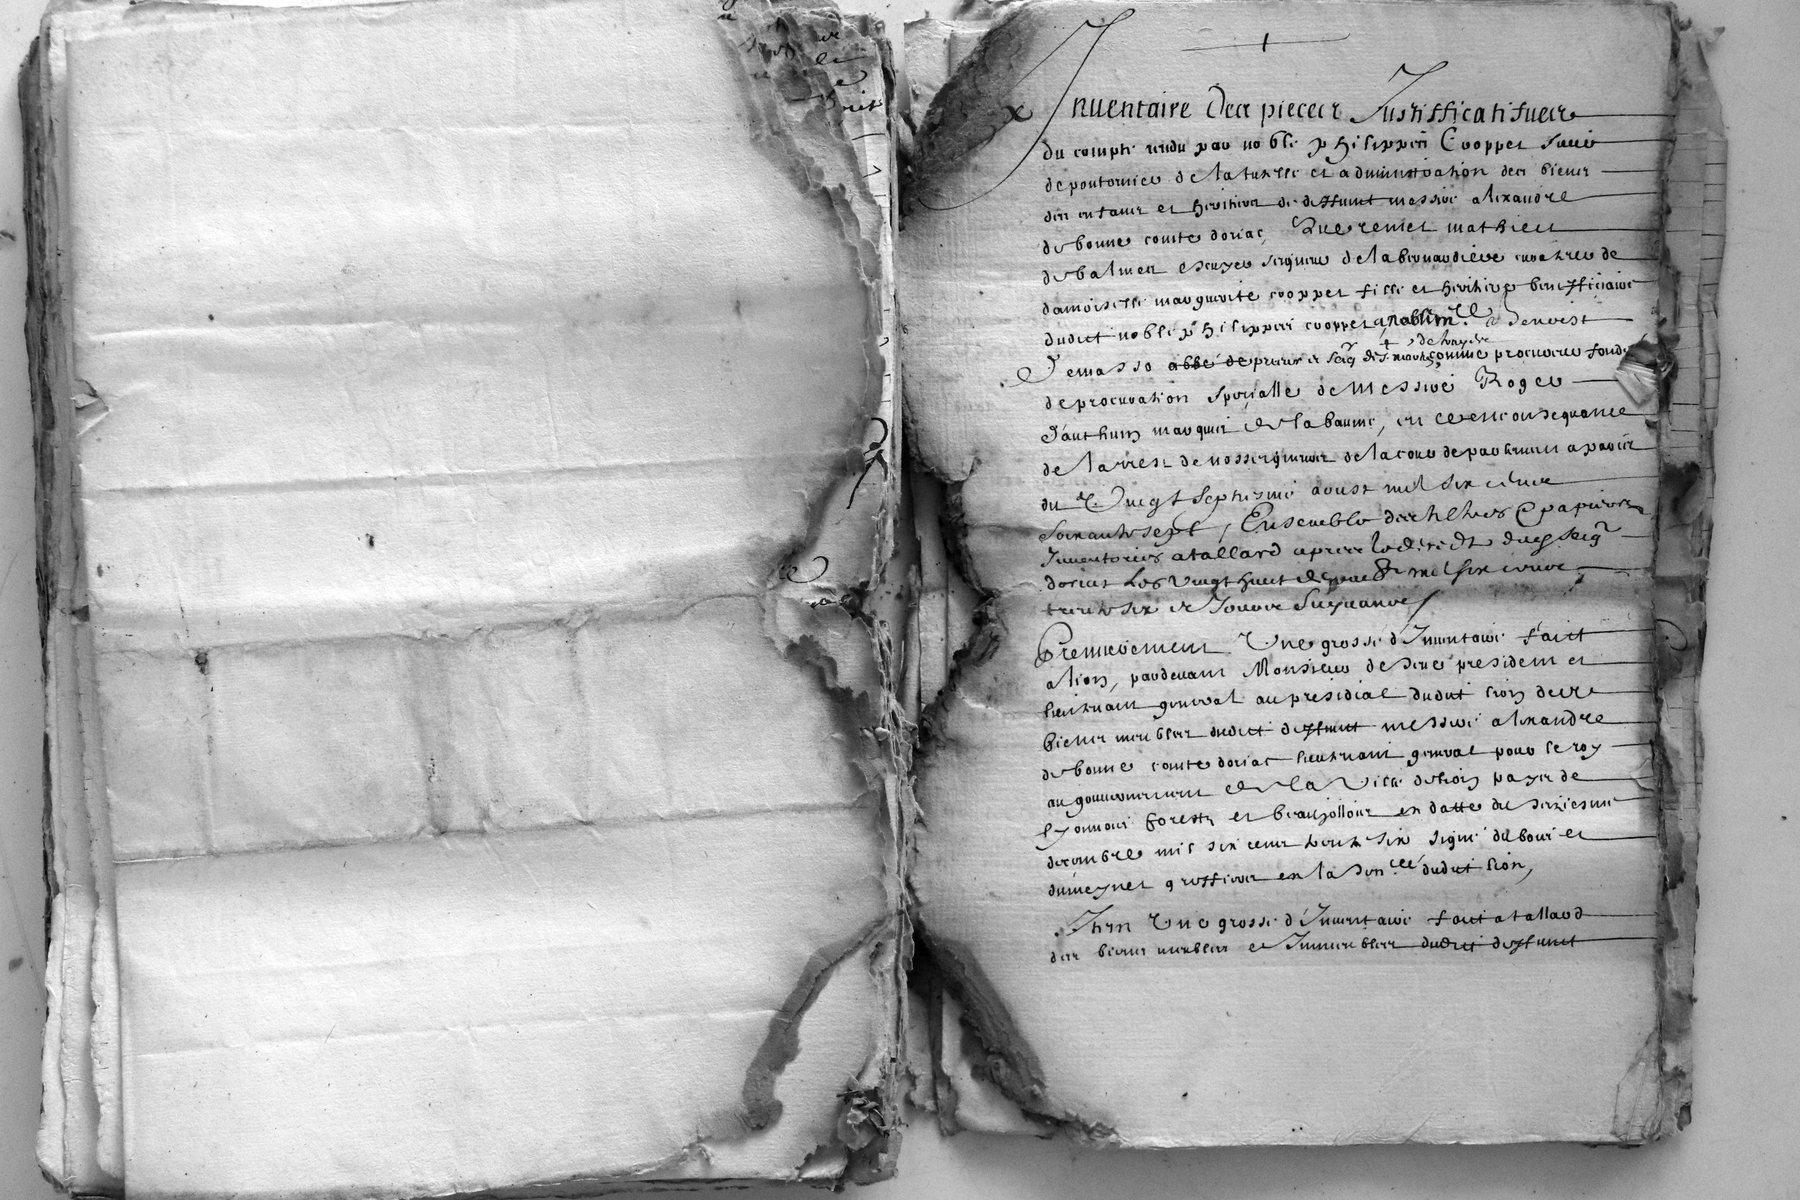 Inventaire Des pieces Justifficatifues
du compte rendu par noble philippes Cooppet
de la tutelle et administration des biens
des enfans et heritiers de deffunt messire alexandre
de bonne comte doriac, Que remet mathieu
de balmes escuyer seigneur de la bernardiere de
damoiselle marguerite cooppet fille et heritiere benefficiaire
dudict noble philippes cooppet a noble mre Benoist
Demasso abbé de prieur et seigr de st comme procureur fondé
de procuration specialle de messire Roger
d'authun marquis de la baume, en consequance
de larrest de nosseigneurs de la cour de parlement a paris
du Vingt septiesme aoust mil six cens
soixante sept, Ensemble des tiltres & papiers
Inuentoriés a tallard apres le decedz dud seigr
doriac Les vingt huict mil six cens
trente six et Jours suiuans
Premierement Une grosse d'Inuentaire faict
a lion, pardeuant Monsieur de seue president et
lieutenant general au presidial dudict lion des
biens meubles dudict deffunt messire alexandre
de bonne comte doriac lieutenant general pour le roy
au gouuernement de la Ville de lion pays de
lyonnois forests et beaujollois en datte du seziesme
decembre mil six cens trente six signé et
grossoier en la sencee dudict lion,
Item Une grosse d'Inuentaire faict a tallard
des biens meubles et Immeubles dudict deffunt